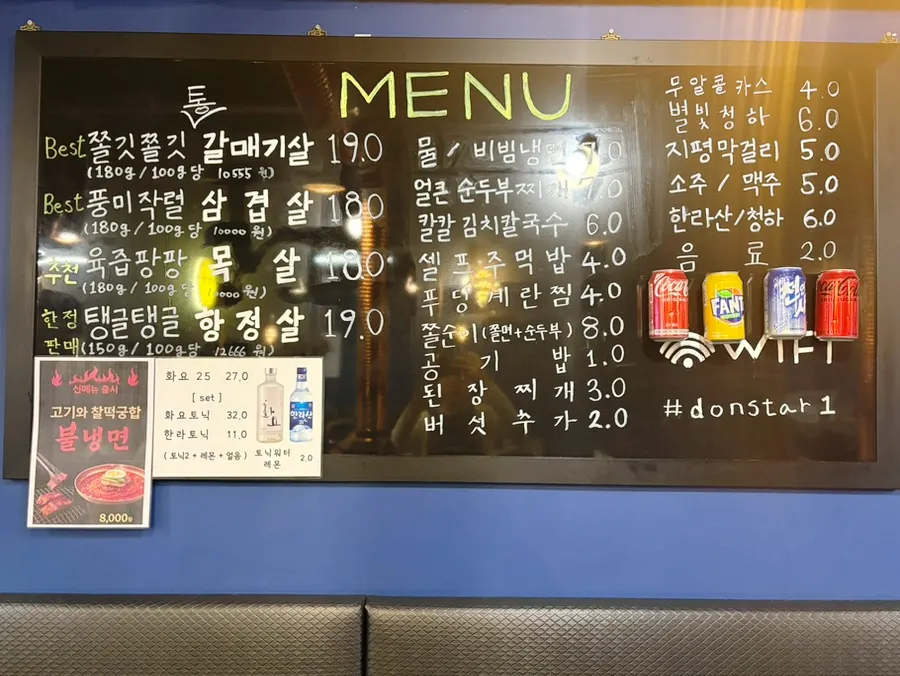 MENU
통
Best 쫄깃쫄깃 갈매기살 19.0
(180g / 100g당 10555 원)
Best 풍미작렬 삼겹살 18.0
(180g / 100g당 10000 원)
추천 육즙팡팡 목살 18.0
(180g / 100g당 0000 원)
한정판매 탱글탱글 항정살 19.0
(150g / 100g당 12666 원)
물 / 비빔냉면 .0
얼큰 순두부찌개 .0
칼칼 김치칼국수 6.0
셀프주먹밥 4.0
푸딩계란찜 4.0
쫄순이 (쫄면+순두부) 8.0
공기밥 1.0
된장찌개 3.0
버섯추가 2.0
무알콜카스 4.0
별빛청하 6.0
지평막걸리 5.0
소주 / 맥주 5.0
한라산/청하 6.0
음료 2.0
FANT
WIFI
#donstar1
신메뉴 출시
고기와 찰떡궁합
불냉면
8,000원
화요 25 27.0
[ set ]
화요토닉 32.0
한라토닉 11.0
( 토닉2 + 레몬 + 얼음 )
화요
한라산
토닉워터
레몬 2.0